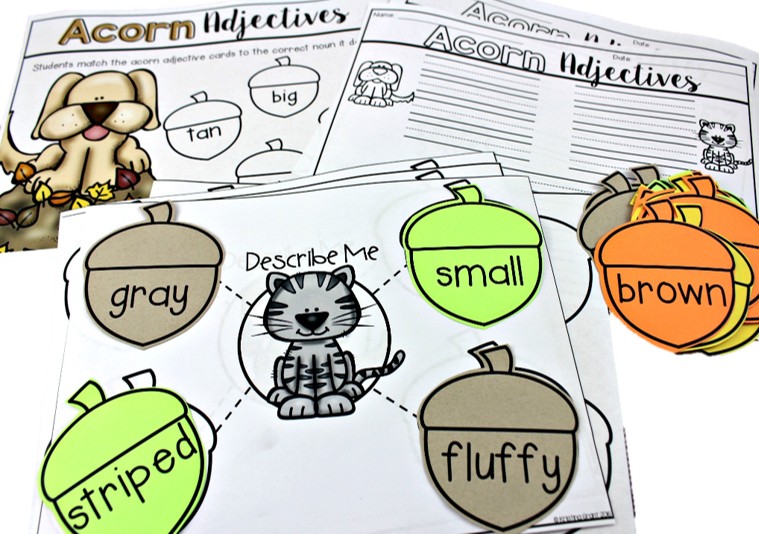 Acorn Adjectives
Students match the acorn adjective cards to the correct noun it d
big
tan
Acorn
Date
Name
Date
Acorn Adjectives
Describe Me
gray
small
brown
striped
fluffy